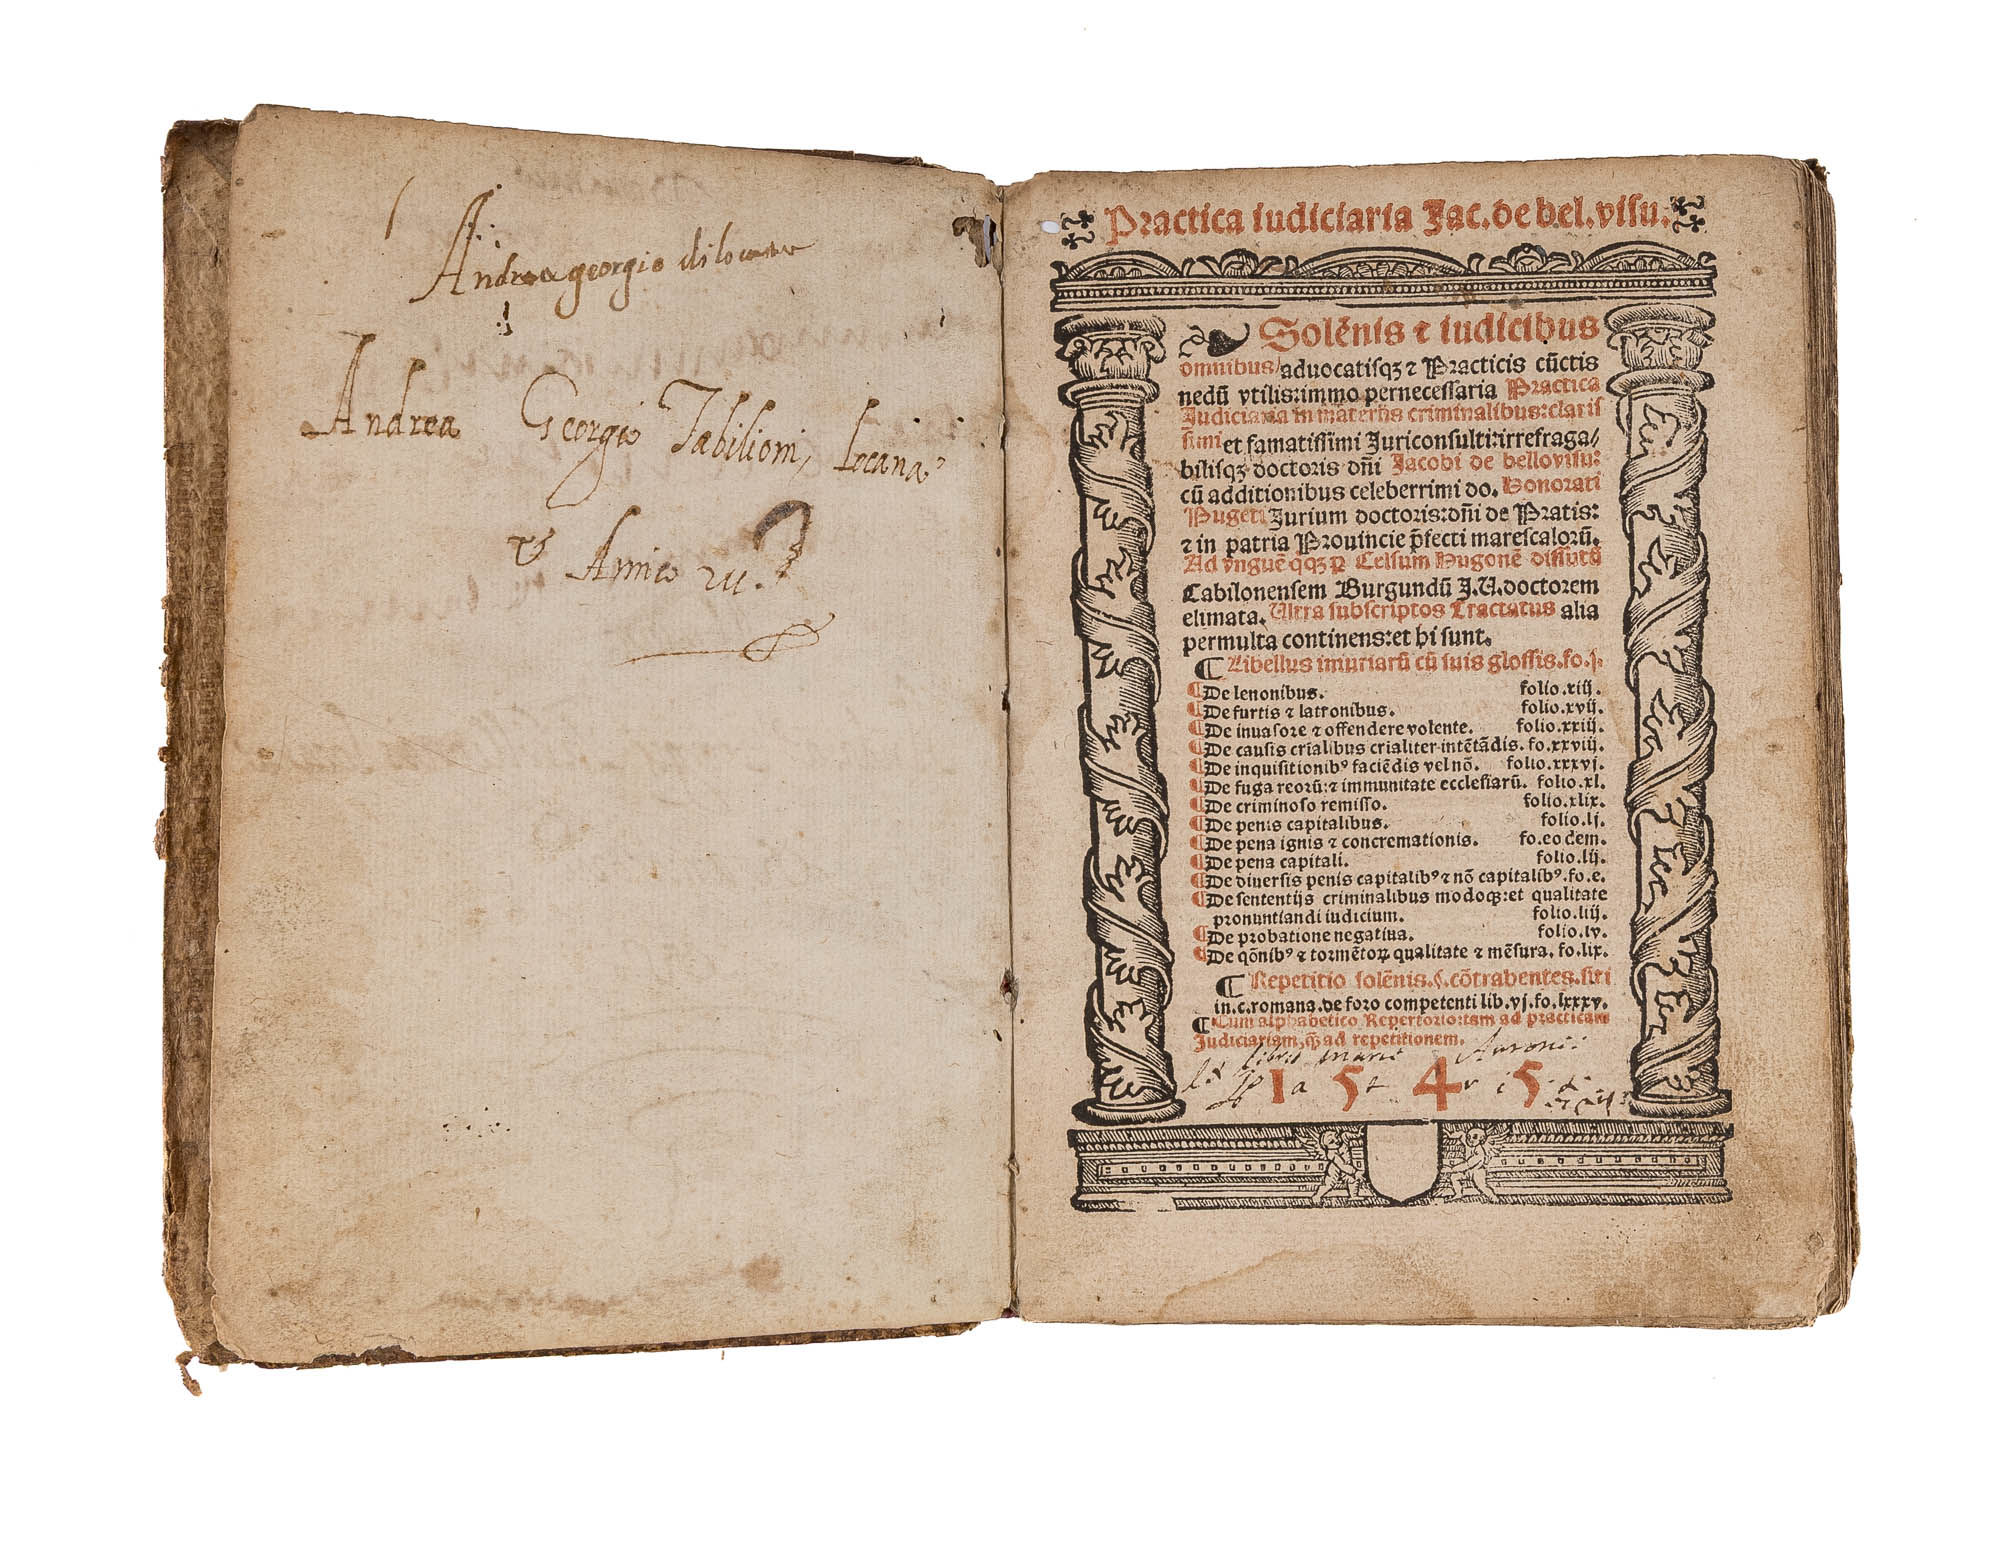 Andrea georgio di locarno
Andrea Georgio Tabilioni, Locana
Amico
Practica iudiciaria Jac. de bel. visu.
Solẽnis ⁊ iudicibus
omnibus/ aduocatisqꝫ ⁊ Practicis cũctis
nedũ vtilis: immo pernecessaria Practica
Judiciaria in materijs criminalibus: claris
simi et famatissimi Juriconsulti: irrefraga/
bilisqꝫ doctoris dñi Jacobi de bellouisu:
cũ additionibus celeberrimi do. Honorati
Pugeti Jurium doctoris: dñi de Pratis:
⁊ in patria Prouincie p̄fecti marescalorũ.
Ad vnguẽ qqꝫ ꝑ Celsum Hugonẽ dissutũ
Cabilonensem Burgundũ J. U. doctorem
elimata. Ultra subscriptos Tractatus alia
permulta continens: et hi sunt.
¶ Libellus iniuriarũ cũ suis glossis. fo. j.
¶ De lenonibus. folio. xiij.
¶ De furtis ⁊ latronibus. folio. xvij.
¶ De inuasore ⁊ offendere volente. folio. xxiij.
¶ De causis crĩalibus crialiter intẽtãdis. fo. xxviij.
¶ De inquisitionibꝰ faciẽdis vel nõ. folio. xxxvj.
¶ De fuga reorũ: ⁊ immunitate ecclesiarũ. folio. xl.
¶ De criminoso remisso. folio. xlix.
¶ De penis capitalibus. folio. lj.
¶ De pena ignis ⁊ concremationis. fo. eodem.
¶ De pena capitali. folio. lij.
¶ De diuersis penis capitalibꝰ ⁊ nõ capitalibꝰ. fo. e.
¶ De sententijs criminalibus modoqꝫ: et qualitate
pronuntiandi iudicium. folio. liij.
¶ De probatione negatiua. folio. lv.
¶ De qõnibꝰ ⁊ tormẽtoꝝ qualitate ⁊ mẽsura. fo. lix.
¶ Repetitio solẽnis. §. cõtrahentes. siti
in. c. romana. de foro competenti lib. vj. fo. lxxxv.
¶ Cum alphabetico Repertorio: tam ad practicam
Judiciariam, qꝫ ad repetitionem.
libro
1 5 4 5